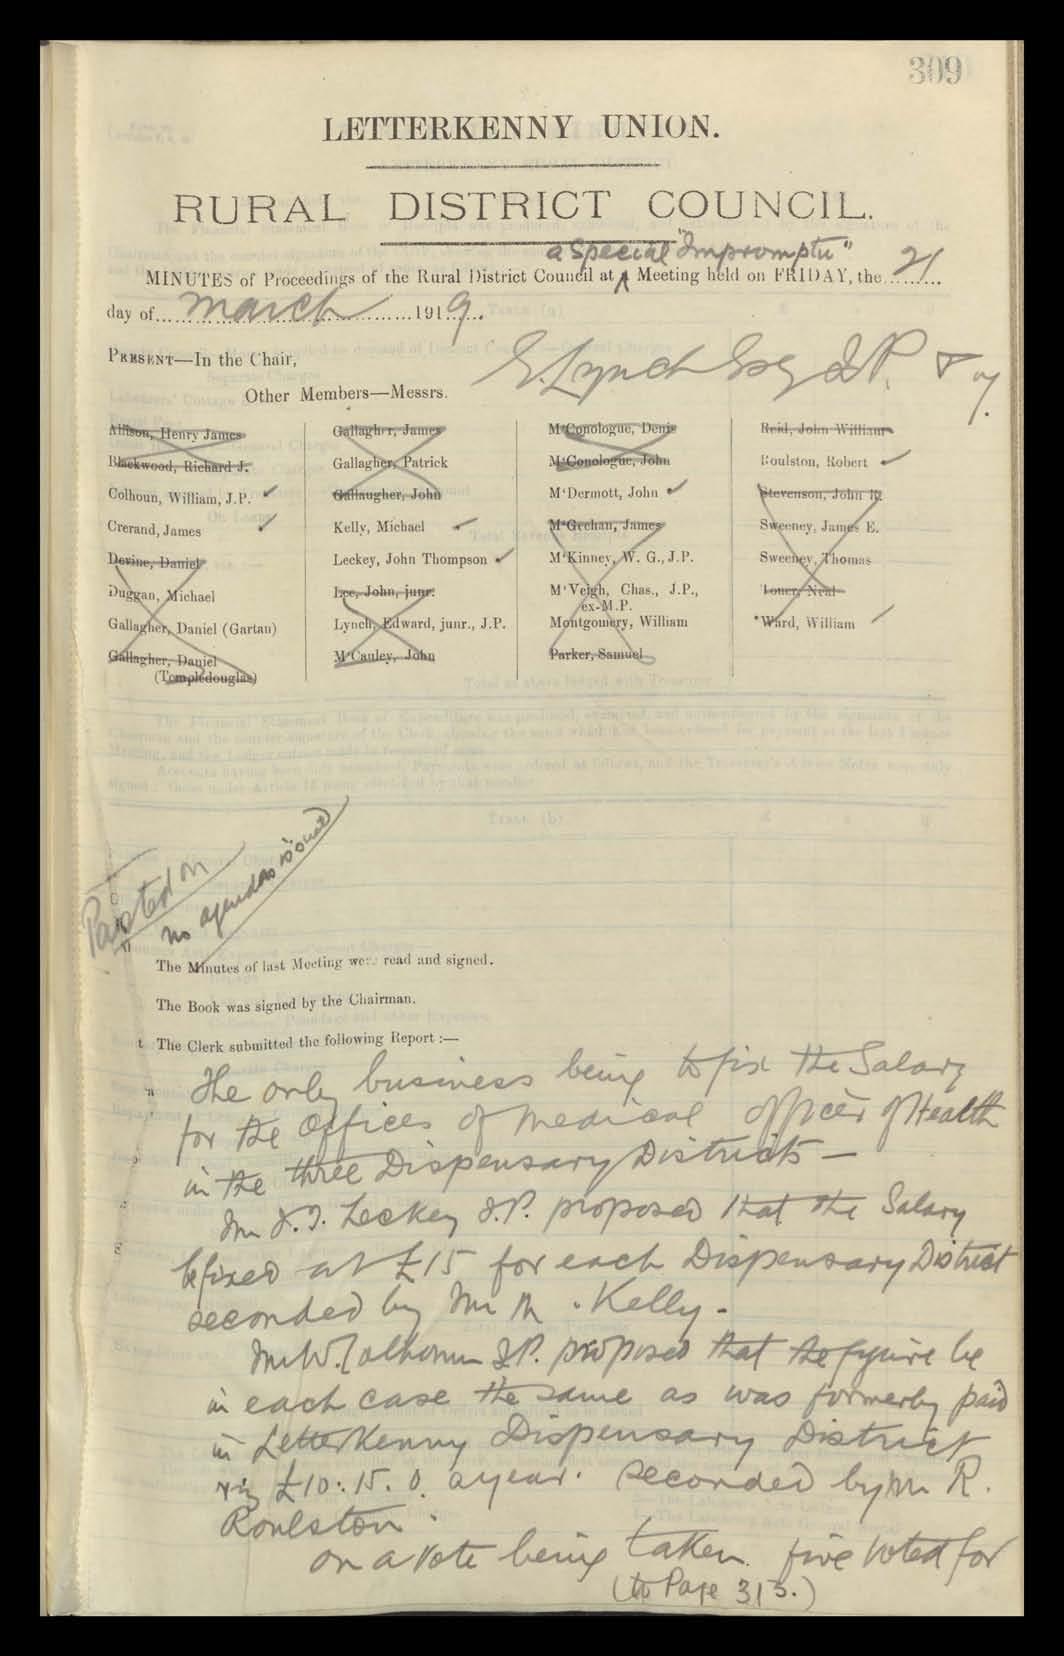 309
LETTERKENNY UNION.
RURAL DISTRICT COUNCIL.
a Special "Impromptu"
MINUTES of Proceedings of the Rural District Council at ^ Meeting held on FRIDAY, the 21
day of March 1919.
PRESENT—In the Chair, E. Lynch Esq J.P. & 7.
Other Members—Messrs.
Allison, Henry James
Blackwood, Richard J.
Colhoun, William, J.P. ✓
Crerand, James ✓
Devine, Daniel
Duggan, Michael
Gallagher, Daniel (Gartan)
Gallagher, Daniel
(Templedouglas)
Gallagher, James
Gallagher, Patrick
Gallaugher, John
Kelly, Michael ✓
Leckey, John Thompson ✓
Lee, John, junr.
Lynch, Edward, junr., J.P.
M'Cauley, John
M'Conologue, Denis
M'Conologue, John
M'Dermott, John ✓
M'Geehan, James
M'Kinney, W. G., J.P.
M'Veigh, Chas., J.P.,
ex-M.P.
Montgomery, William
Parker, Samuel
Reid, John William
Roulston, Robert ✓
Stevenson, John R.
Sweeney, James E.
Sweeney, Thomas
Toner, Neal
*Ward, William ✓
Pasted on
no agendas issued
The Minutes of last Meeting were read and signed.
The Book was signed by the Chairman.
t The Clerk submitted the following Report :—
The only business being to fix the Salary
for the Offices of Medical Officer of Health
in the three Dispensary Districts —
Mr J.T. Leckey J.P. proposed that the Salary
be fixed at £15 for each Dispensary District
seconded by Mr M. Kelly.
Mr W. Colhoun J.P. proposed that the figure be
in each case the same as was formerly paid
in Letterkenny Dispensary District
viz £10.15.0 a year. Seconded by Mr R.
Roulston.
On a vote being taken five voted for
(to Page 313.)